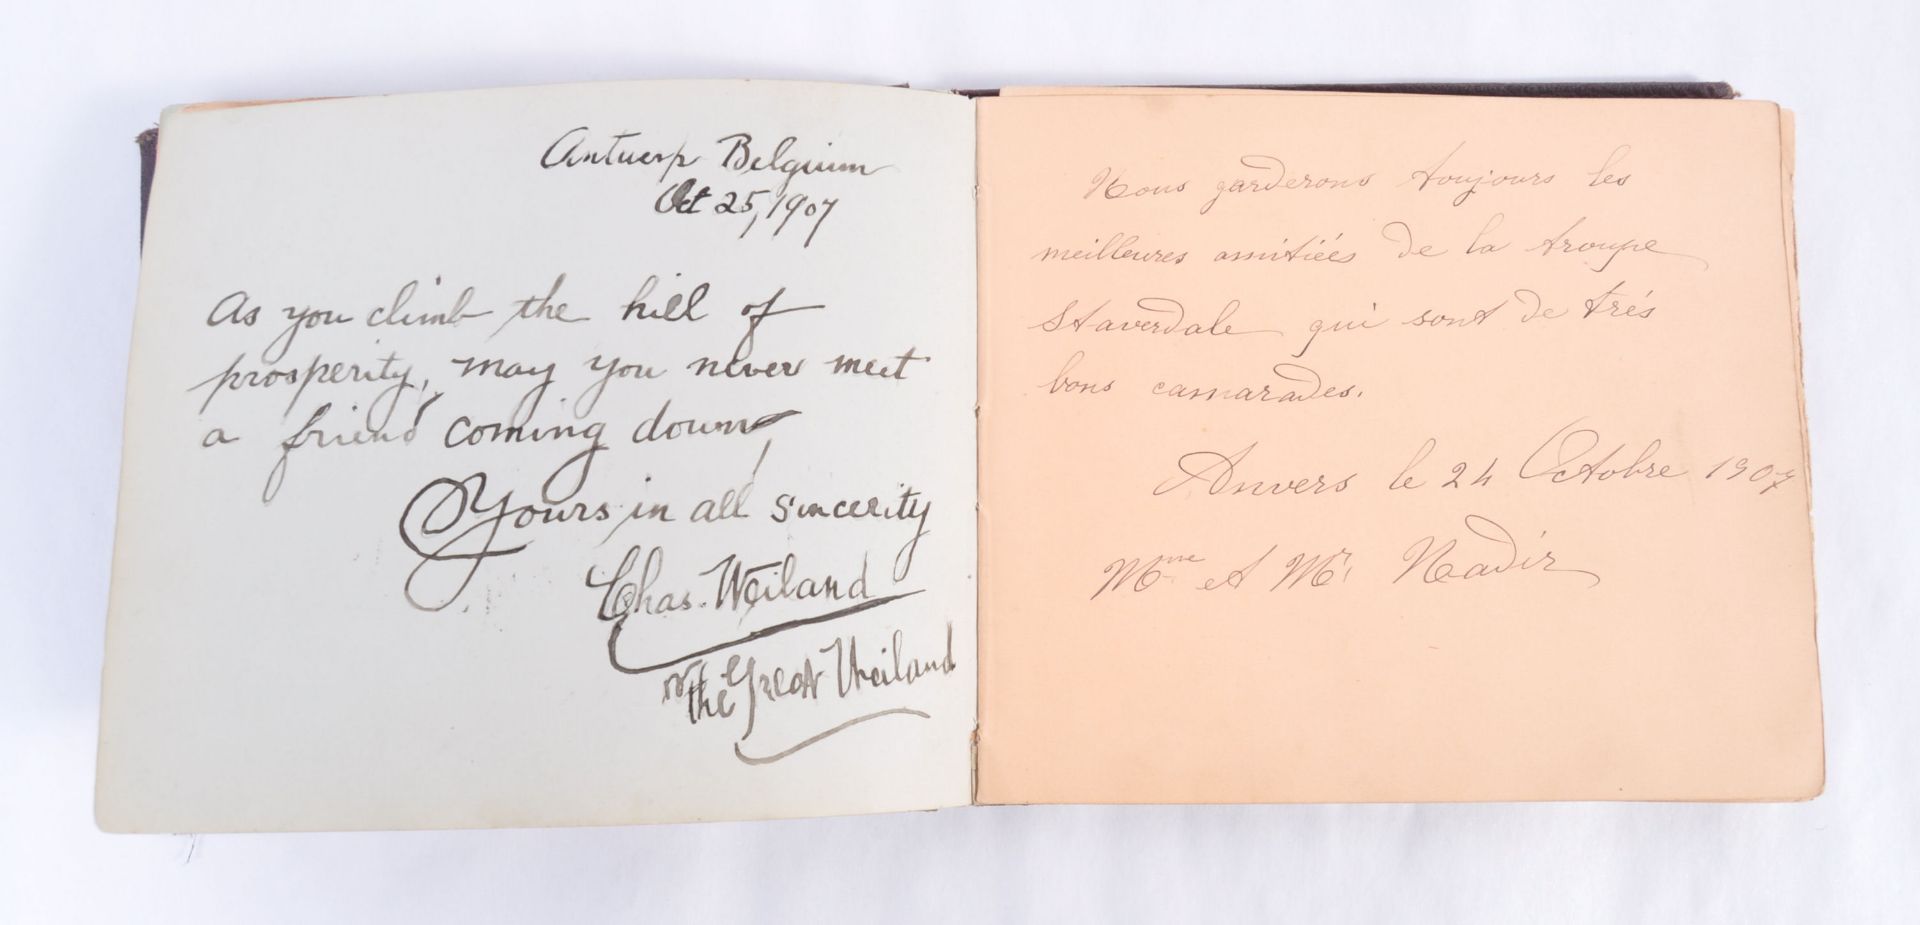 Antwerp Belgium
Oct 25, 1907
As you climb the hill of
prosperity, may you never meet
a friend coming down,
Yours in all sincerity
Chas. Weiland
or the Great Weiland
Nous garderons toujours les
meilleures amitiées de la troupe
Staverdale qui sont de trés
bons camarades.
Anvers le 24 Octobre 1907
Mme et Mr Nadir